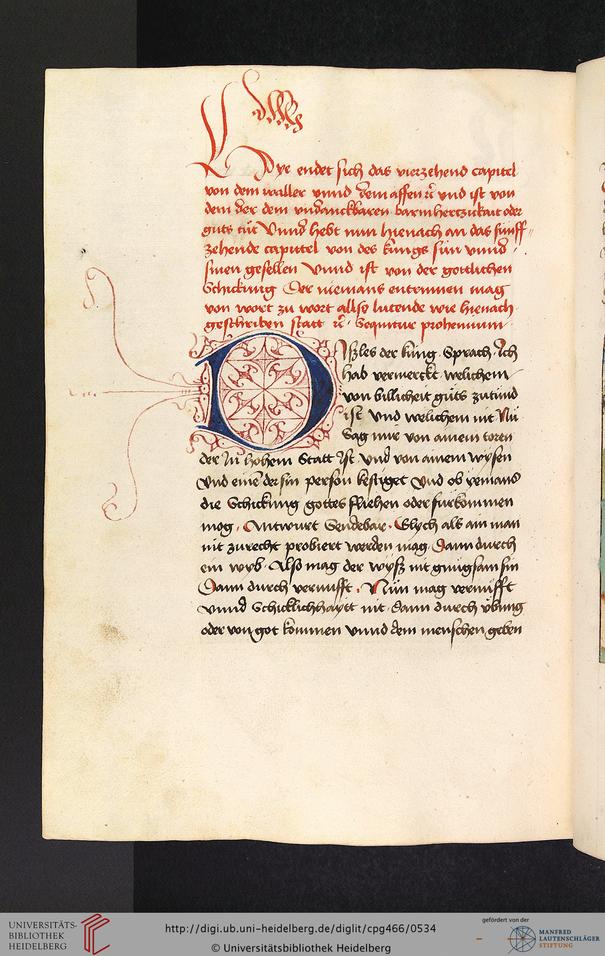 Hye endet sich das vierzehend capitel
von dem waller unnd dem affen ꝛc und ist von
dem der dem undanckbaren barmhertzikait oder
guts tut Unnd hebt nun hienach an das funff=
zehende capittel von des kungs sun unnd
sinen gesellen Unnd ist von der gottlichen
Schickung Der niemans entrinnen mag
von wort zu wort allso lutende wie hienach
geschriben statt ꝛc. Sequitur prohemium
DIßles der kung. Sprach. Ich
hab vermerckt welichem
von billicheit guts zutund
ist Und welichem nit Nu
Sag mir von ainem toren
der In hohem Statt Ist Und von ainem wysen
Und eine der sin person kestiget Und ob yemans
die Schickung gottes fliehen oder furkommen
mog. Antwurt Sendebar. Glych als am man
nit zurecht probiert werden mag. Dann durch
ein wyb. Also mag der wyß nit gnugsam sin
Dann durch vernufft. Nun mag vernufft
unnd Schicklichhaytt nit dann durch ubung
oder von got kommen unnd dem menschen geben
UNIVERSITÄTS-
BIBLIOTHEK
HEIDELBERG
http://digi.ub.uni-heidelberg.de/diglit/cpg466/0534
© Universitätsbibliothek Heidelberg
gefördert von der
MANFRED
LAUTENSCHLÄGER
STIFTUNG